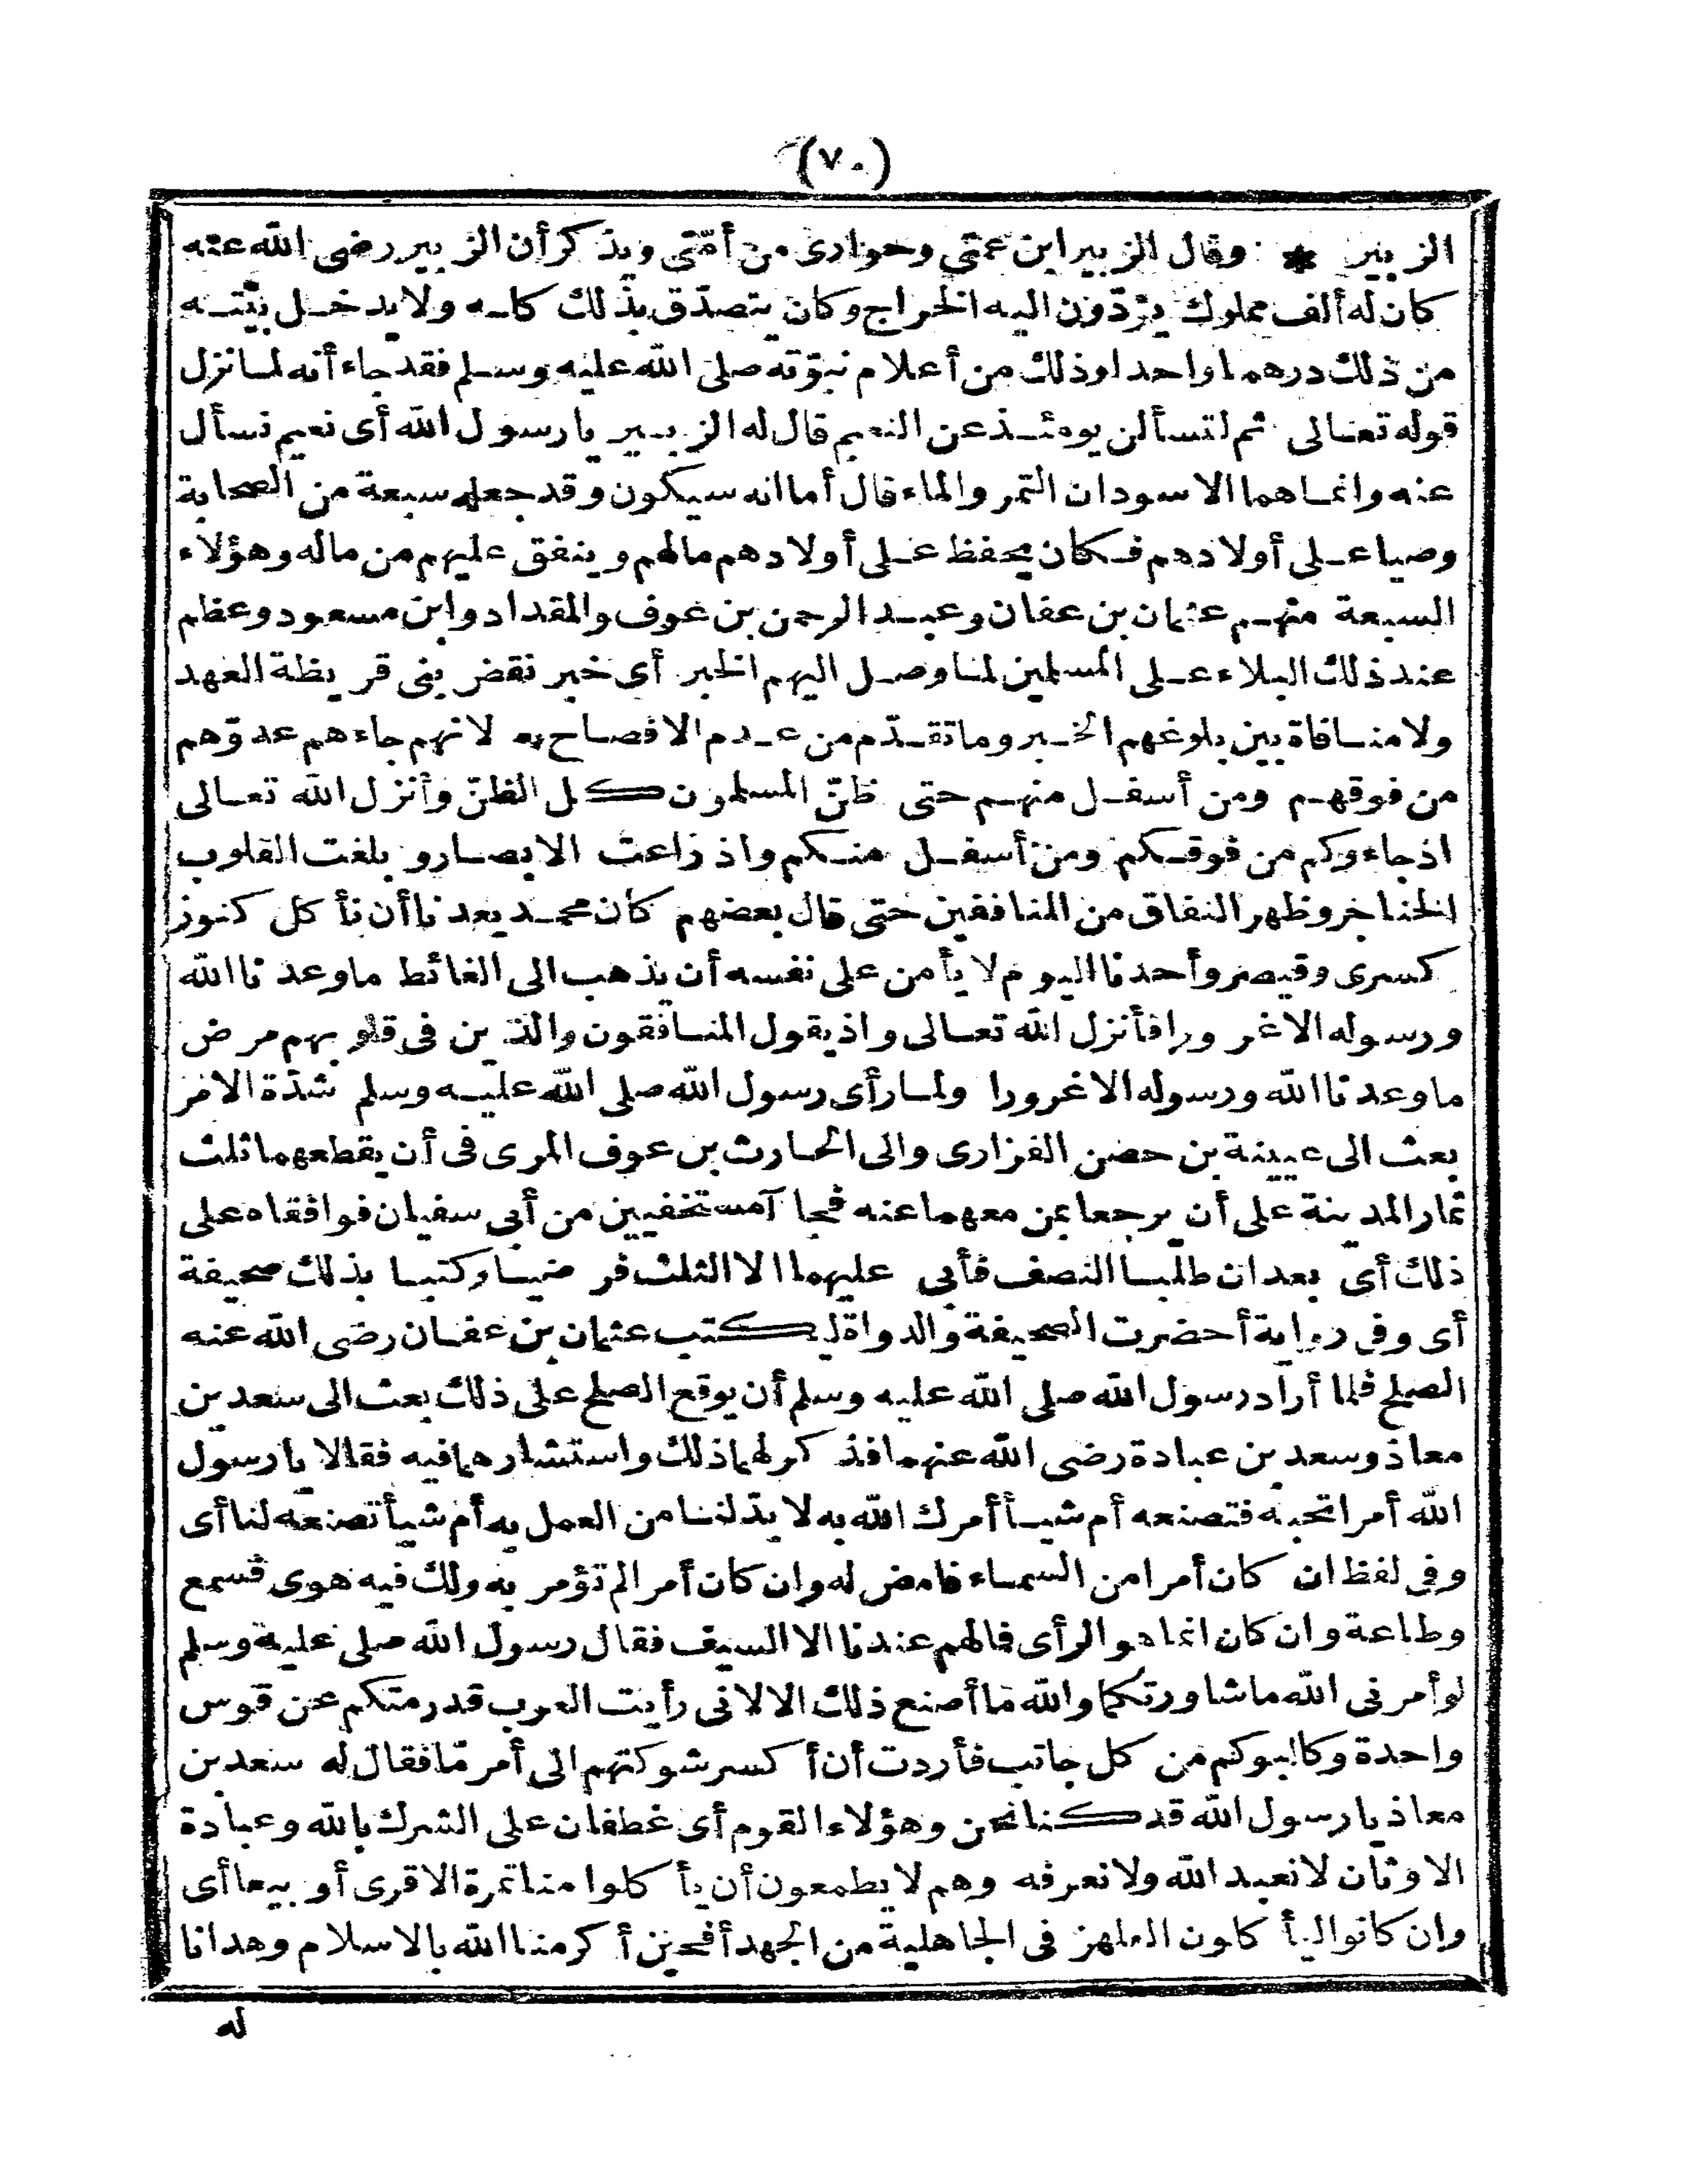 (٧٠)
الزبير * وقال الزبير ابن عمتى وحوارى من أمّتى ويذكر أن الزبير رضى الله عنه
كان له ألف مملوك يؤدّون اليه الخراج وكان يتصدّق بذلك كله ولا يدخل بيته
من ذلك درهما واحدا وذلك من أعلام نبوّته صلى الله عليه وسلم فقد جاء أنه لما نزل
قوله تعالى ثم لتسألن يومئذ عن النعيم قال له الزبير يا رسول الله أى نعيم نسأل
عنه وانما هما الاسودان التمر والماء قال أما انه سيكون وقد جعله سبعة من الصحابة
وصيا على أولادهم فكان يحفظ على أولادهم مالهم وينفق عليهم من ماله وهؤلاء
السبعة منهم عثمان بن عفان وعبد الرحمن بن عوف والمقداد وابن مسعود وعظم
عند ذلك البلاء على المسلمين لما وصل اليهم الخبر أى خبر نقض بنى قريظة العهد
ولا منافاة بين بلوغهم الخبر وما تقدّم من عدم الافصاح به لانهم جاءهم عدوّهم
من فوقهم ومن أسفل منهم حتى ظنّ المسلمون كل الظنّ وأنزل الله تعالى
اذ جاءوكم من فوقكم ومن أسفل منكم واذ زاغت الابصار وبلغت القلوب
الحناجر وظهر النفاق من المنافقين حتى قال بعضهم كان محمد يعدنا أن نأكل كنوز
كسرى وقيصر وأحدنا اليوم لا يأمن على نفسه أن يذهب الى الغائط ما وعدنا الله
ورسوله الا غرورا فأنزل الله تعالى واذ يقول المنافقون والذين فى قلوبهم مرض
ما وعدنا الله ورسوله الا غرورا ولما رأى رسول الله صلى الله عليه وسلم شدّة الامر
بعث الى عيينة بن حصن الفزارى والى الحارث بن عوف المرى فى أن يقطعهما ثلث
ثمار المدينة على أن يرجعا بمن معهما عنه فجا آمستخفيين من أبى سفيان فوافقاه على
ذلك أى بعد ان طلبا النصف فأبى عليهما الا الثلث فرضيا وكتبا بذلك صحيفة
أى وفى رواية أحضرت الصحيفة والدواة ليكتب عثمان بن عفان رضى الله عنه
الصلح فلما أراد رسول الله صلى الله عليه وسلم أن يوقع الصلح على ذلك بعث الى سعد بن
معاذ وسعد بن عبادة رضى الله عنهما فذكر لهما ذلك واستشارهما فيه فقالا يا رسول
الله أمرا تحبه فتصنعه أم شيأ أمرك الله به لا بدّ لنا من العمل به أم شيأ تصنعه لنا أى
وفى لفظ ان كان أمرا من السماء فامض له وان كان أمرا لم تؤمر به ولك فيه هوى فسمع
وطاعة وان كان انما هو الرأى فمالهم عندنا الا السيف فقال رسول الله صلى عليه وسلم
لو أمرنى الله ما شاورتكما والله ما أصنع ذلك الا لانى رأيت العرب قد رمتكم عن قوس
واحدة وكالبوكم من كل جانب فأردت أن أكسر شوكتهم الى أمر مّا فقال له سعد بن
معاذ يا رسول الله قد كنا نحن وهؤلاء القوم أى غطفان على الشرك بالله وعبادة
الاوثان لا نعبد الله ولا نعرفه وهم لا يطمعون أن يأكلوا منا تمرة الا قرى أو بيعا أى
وان كانوا ليأكلون العلهز فى الجاهلية من الجهد أفحين أكرمنا الله بالاسلام وهدانا
له